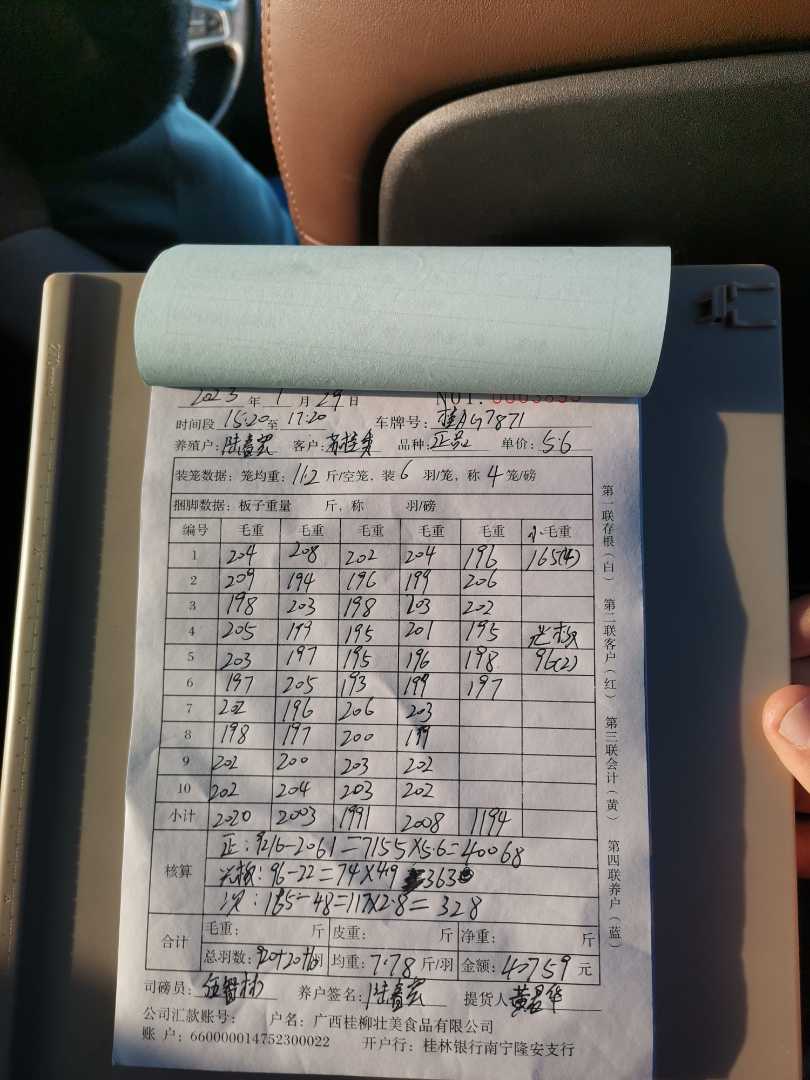 2023年1月29日 NO1:
时间段 15:20至17:20 车牌号: 桂AG7871
养殖户: 客户: 品种: 单价: 5.6
装笼数据: 笼均重: 11.2 斤/空笼, 装 6 羽/笼, 称 4 笼/磅
捆脚数据: 板子重量 斤, 称 羽/磅
编号 毛重 毛重 毛重 毛重 毛重 小毛重
1 204 208 202 204 196 165(4)
2 209 194 196 199 206
3 198 203 198 203 202
4 205 199 195 201 195
5 203 197 195 196 198 96(2)
6 197 205 193 199 197
7 202 196 206 203
8 198 197 200 199
9 202 200 203 202
10 202 204 203 202
小计 2020 2003 1991 2008 1194
核算 正: 9216-2061=7155×5.6=40068
96-22=74×4.9 363
次: 165-48=117×2.8=328
合计 毛重: 斤 皮重: 斤 净重: 斤
总羽数: 920+20+16羽 均重: 7.78 斤/羽 金额: 40759 元
司磅员: 养户签名: 提货人 黄昌华
公司汇款账号: 户名: 广西桂柳壮美食品有限公司
账 户: 660000014752300022 开户行: 桂林银行南宁隆安支行
第一联存根(白) 第二联客户(红) 第三联会计(黄) 第四联养户(蓝)